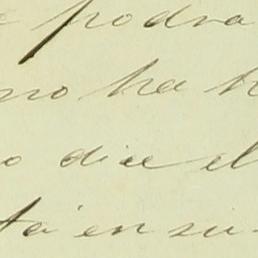 podra
no ha
o dice el
ta en su